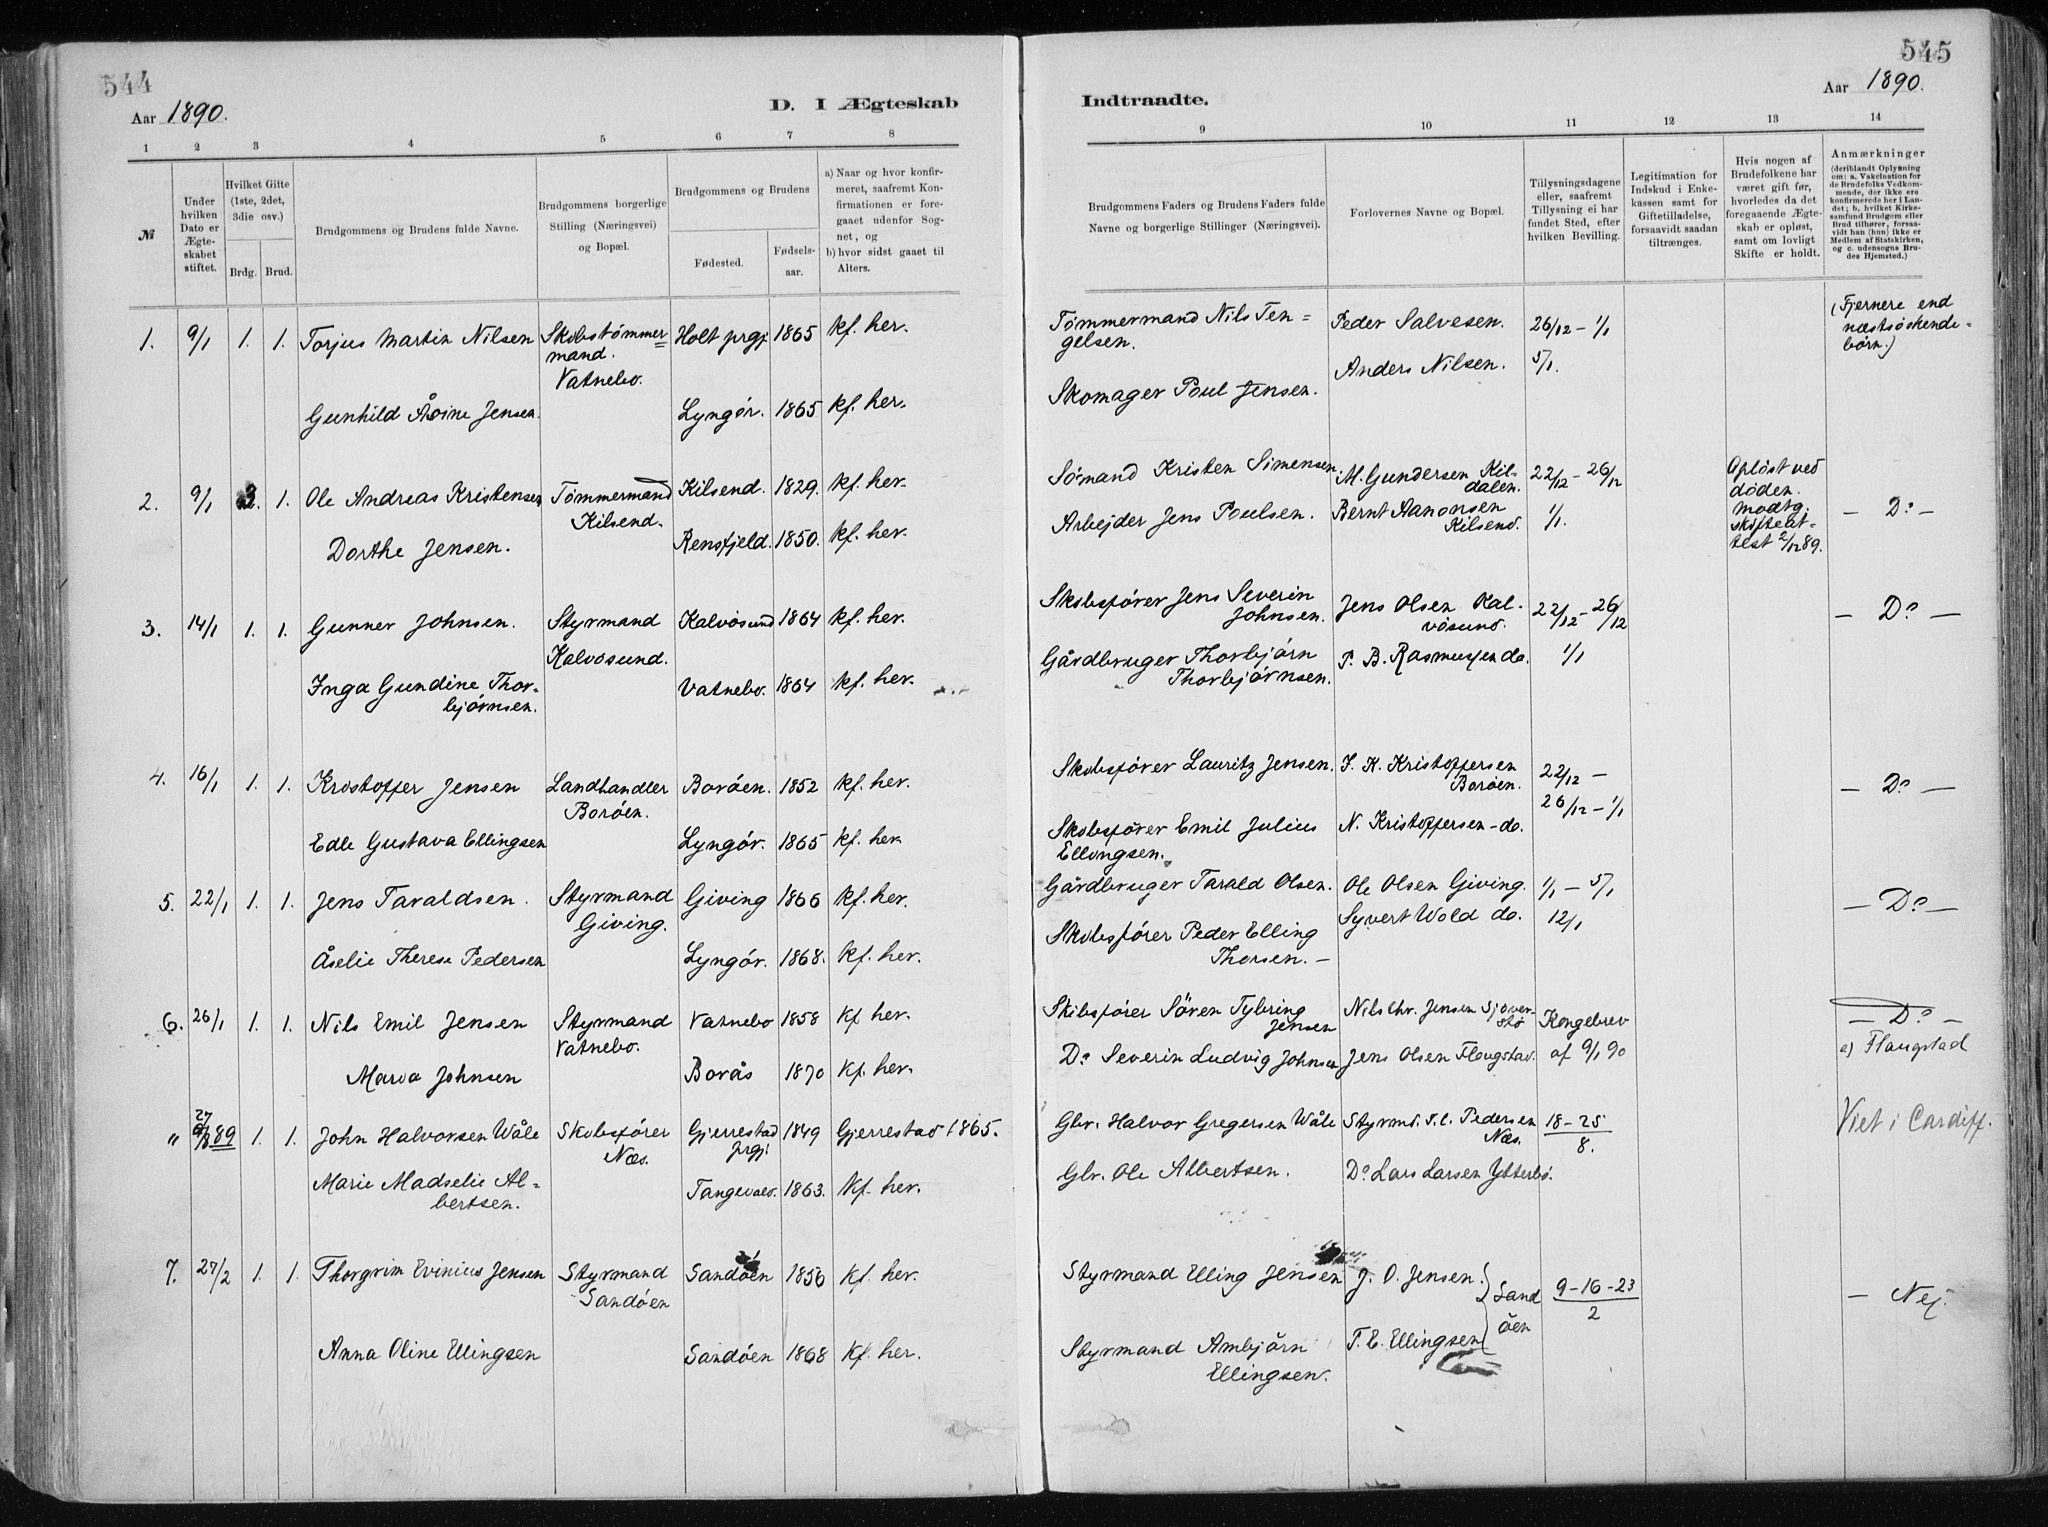 544
Aar 1890.
D. I Ægteskab
1 2 3 4 5 6 7 8
№
Under hvilken Dato er Ægteskabet stiftet.
Hvilket Gifte (1ste, 2det, 3die osv.)
Brdg. Brud.
Brudgommens og Brudens fulde Navne.
Brudgommens borgerlige Stilling (Næringsvei) og Bopæl.
Brudgommens og Brudens
Fødested.
Fødselsaar.
a) Naar og hvor konfirmeret, saafremt Konfirmationen er foregaaet udenfor Sognet, og
b) hvor sidst gaaet til Alters.
1. 9/1 1. 1. Torjus Martin Nilsen Skibstømmer
mand.
Vatnebo.
Holt prgj. 1865 kf. her.
Gunhild Åsine Jensen. Lyngör. 1865 kf. her.
2. 9/1 2. 1. Ole Andreas Kristensen Tømmermand Kilsend. 1829. kf. her.
Kilsend.
Dorthe Jensen. Rensfjeld. 1850. kf. her.
3. 14/1 1. 1. Gunner Johnsen. Styrmand Kalvøsund 1864 kf. her.
Kalvøsund.
Inga Gundine Thor-
bjørnsen.
Vatnebo. 1864 kf. her.
4. 16/1 1. 1. Kristoffer Jensen Landhandler Borøen. 1852 kf. her.
Borøen.
Edle Gustava Ellingsen Lyngör. 1865 kf. her.
5. 22/1 1. 1. Jens Taraldsen. Styrmand Giving 1866 kf. her.
Giving.
Åselie Therese Pedersen Lyngör. 1868. kf. her.
6. 26/1 1. 1. Nils Emil Jensen Styrmand Vatnebo 1858 kf her.
Vatnebo.
Maria Johnsen Borås 1870 Kf. her.
" 27/8 89 1. 1. John Halvorsen Wåle Skibsfører Gjerrestad 1849 Gjerrestad 1865.
Næs. prgj.
Marie Madselie Al-
bertsen.
Tangevaet. 1863. Kf. her.
7. 27/2 1. 1. Thorgrim Evinius Jensen Styrmand Sandøen 1856 Kf. her.
Sandøen
Anna Oline Ellingsen Sandøen 1868 Kf. her.
545
Indtraadte.
Aar 1890.
9 10 11 12 13 14
Brudgommens Faders og Brudens Faders fulde Navne og borgerlige Stillinger (Næringsvei).
Forlovernes Navne og Bopæl.
Tillysningsdagene eller, saafremt Tillysning ei har fundet Sted, efter hvilken Bevilling.
Legitimation for Indskud i Enkekassen samt for Giftetilladelse, forsaavidt saadan tiltrænges.
Hvis nogen af Brudefolkene har været gift før, hvorledes da det foregaaende Ægteskab er opløst, samt om lovligt Skifte er holdt.
Anmærkninger
(deriblandt Oplysning om: a. Vakcination for de Brudefolks Vedkommende, der ikke ere konfirmerede her i Landet; b. hvilket Kirkesamfund Brudgom eller Brud tilhører, forsaavidt han (hun) ikke er Medlem af Statskirken, og c. udensogns Brudes Hjemsted.)
Tømmermand Nils Ten=
gelsen.
Peder Salvesen. 26/12 - 1/1
(Fjernere end
næstsøskende-
børn.)
Anders Nilsen. 5/1.
Skomager Poul Jensen.
Sømand Kristen Simensen. M. Gundersen Kil-
dalen.
22/12 - 26/12
Opløst ved
døden.
modtg.
skifteat-
test 2/12 89.
- Do -
Arbejder Jens Poulsen. Bernt Aanonsen
Kilsend.
1/1.
Skibsfører Jens Severin
Johnsen.
Jens Olsen Kal-
vøsund.
22/12 - 26/12
- Do -
Gårdbruger Thorbjørn
Thorbjørnsen.
P. B. Rasmussen do. 1/1
Skibsfører Lauritz Jensen. J. K. Kristoffersen
Borøen.
22/12 -
26/12 - 1/1
- Do -
Skibsfører Emil Julius
Ellingsen.
N. Kristoffersen - do.
Gårdbruger Tarald Olsen. Ole Olsen Giving. 1/1 - 5/1
- Do -
Syvert Wold do. 12/1
Skibsfører Peder Elling
Thorsen. -
Skibsfører Sören Tybring
Jensen
Nils Chr. Jensen Sjøver-
stø
Kongebrev
- Do -
Do Severin Ludvig Johnsen Jens Olsen Flougstad. af 9/1 90
c) Flaugstad
Gbr. Halvor Gregersen Wåle Styrmd. T. C. Pedersen
Næs.
18 - 25
8.
Viet i Cardiff.
Gbr. Ole Albertsen. Do Lars Larsen Ytterbø.
Styrmand Elling Jensen J. O. Jensen. } Sand
öen
9 - 16 - 23
2
- Nej.
Styrmand Ambjørn
Ellingsen.
T. E. Ellingsen